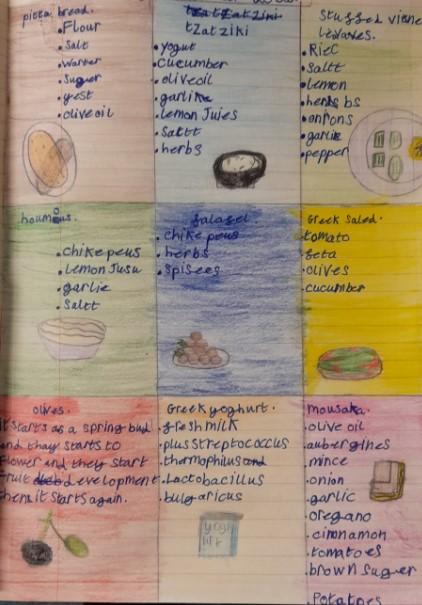 pitta bread.
Flour
Salt
Warter
Suger
yest
olive oil
tzatziki
tZatziki
yogut
cucumber
olive oil
garlike
lemon Juies
Saltt
herbs
Stuffed viene
leaves.
Riec
Saltt
lemon
herbs bs
onions
garlic
pepper
houmous.
chikepeus
Lemon Jusu
garlic
Saltt
falafel
chike peus
herbs
spisees
Greek Saled.
tomato
feta
olives
cucumber
olives.
it starts as a spring bud
and thay starts to
Flower and they start
Fruit development
then it starts again.
Greek yoghurt.
fresh milk
plus Streptococcus
thermophilus and
Lactobacillus
bulgaricus
yogh
mousaka.
olive oil
aubergines
mince
onion
garlic
oregano
cinnamon
tomatoes
brown Suger
Potatoes